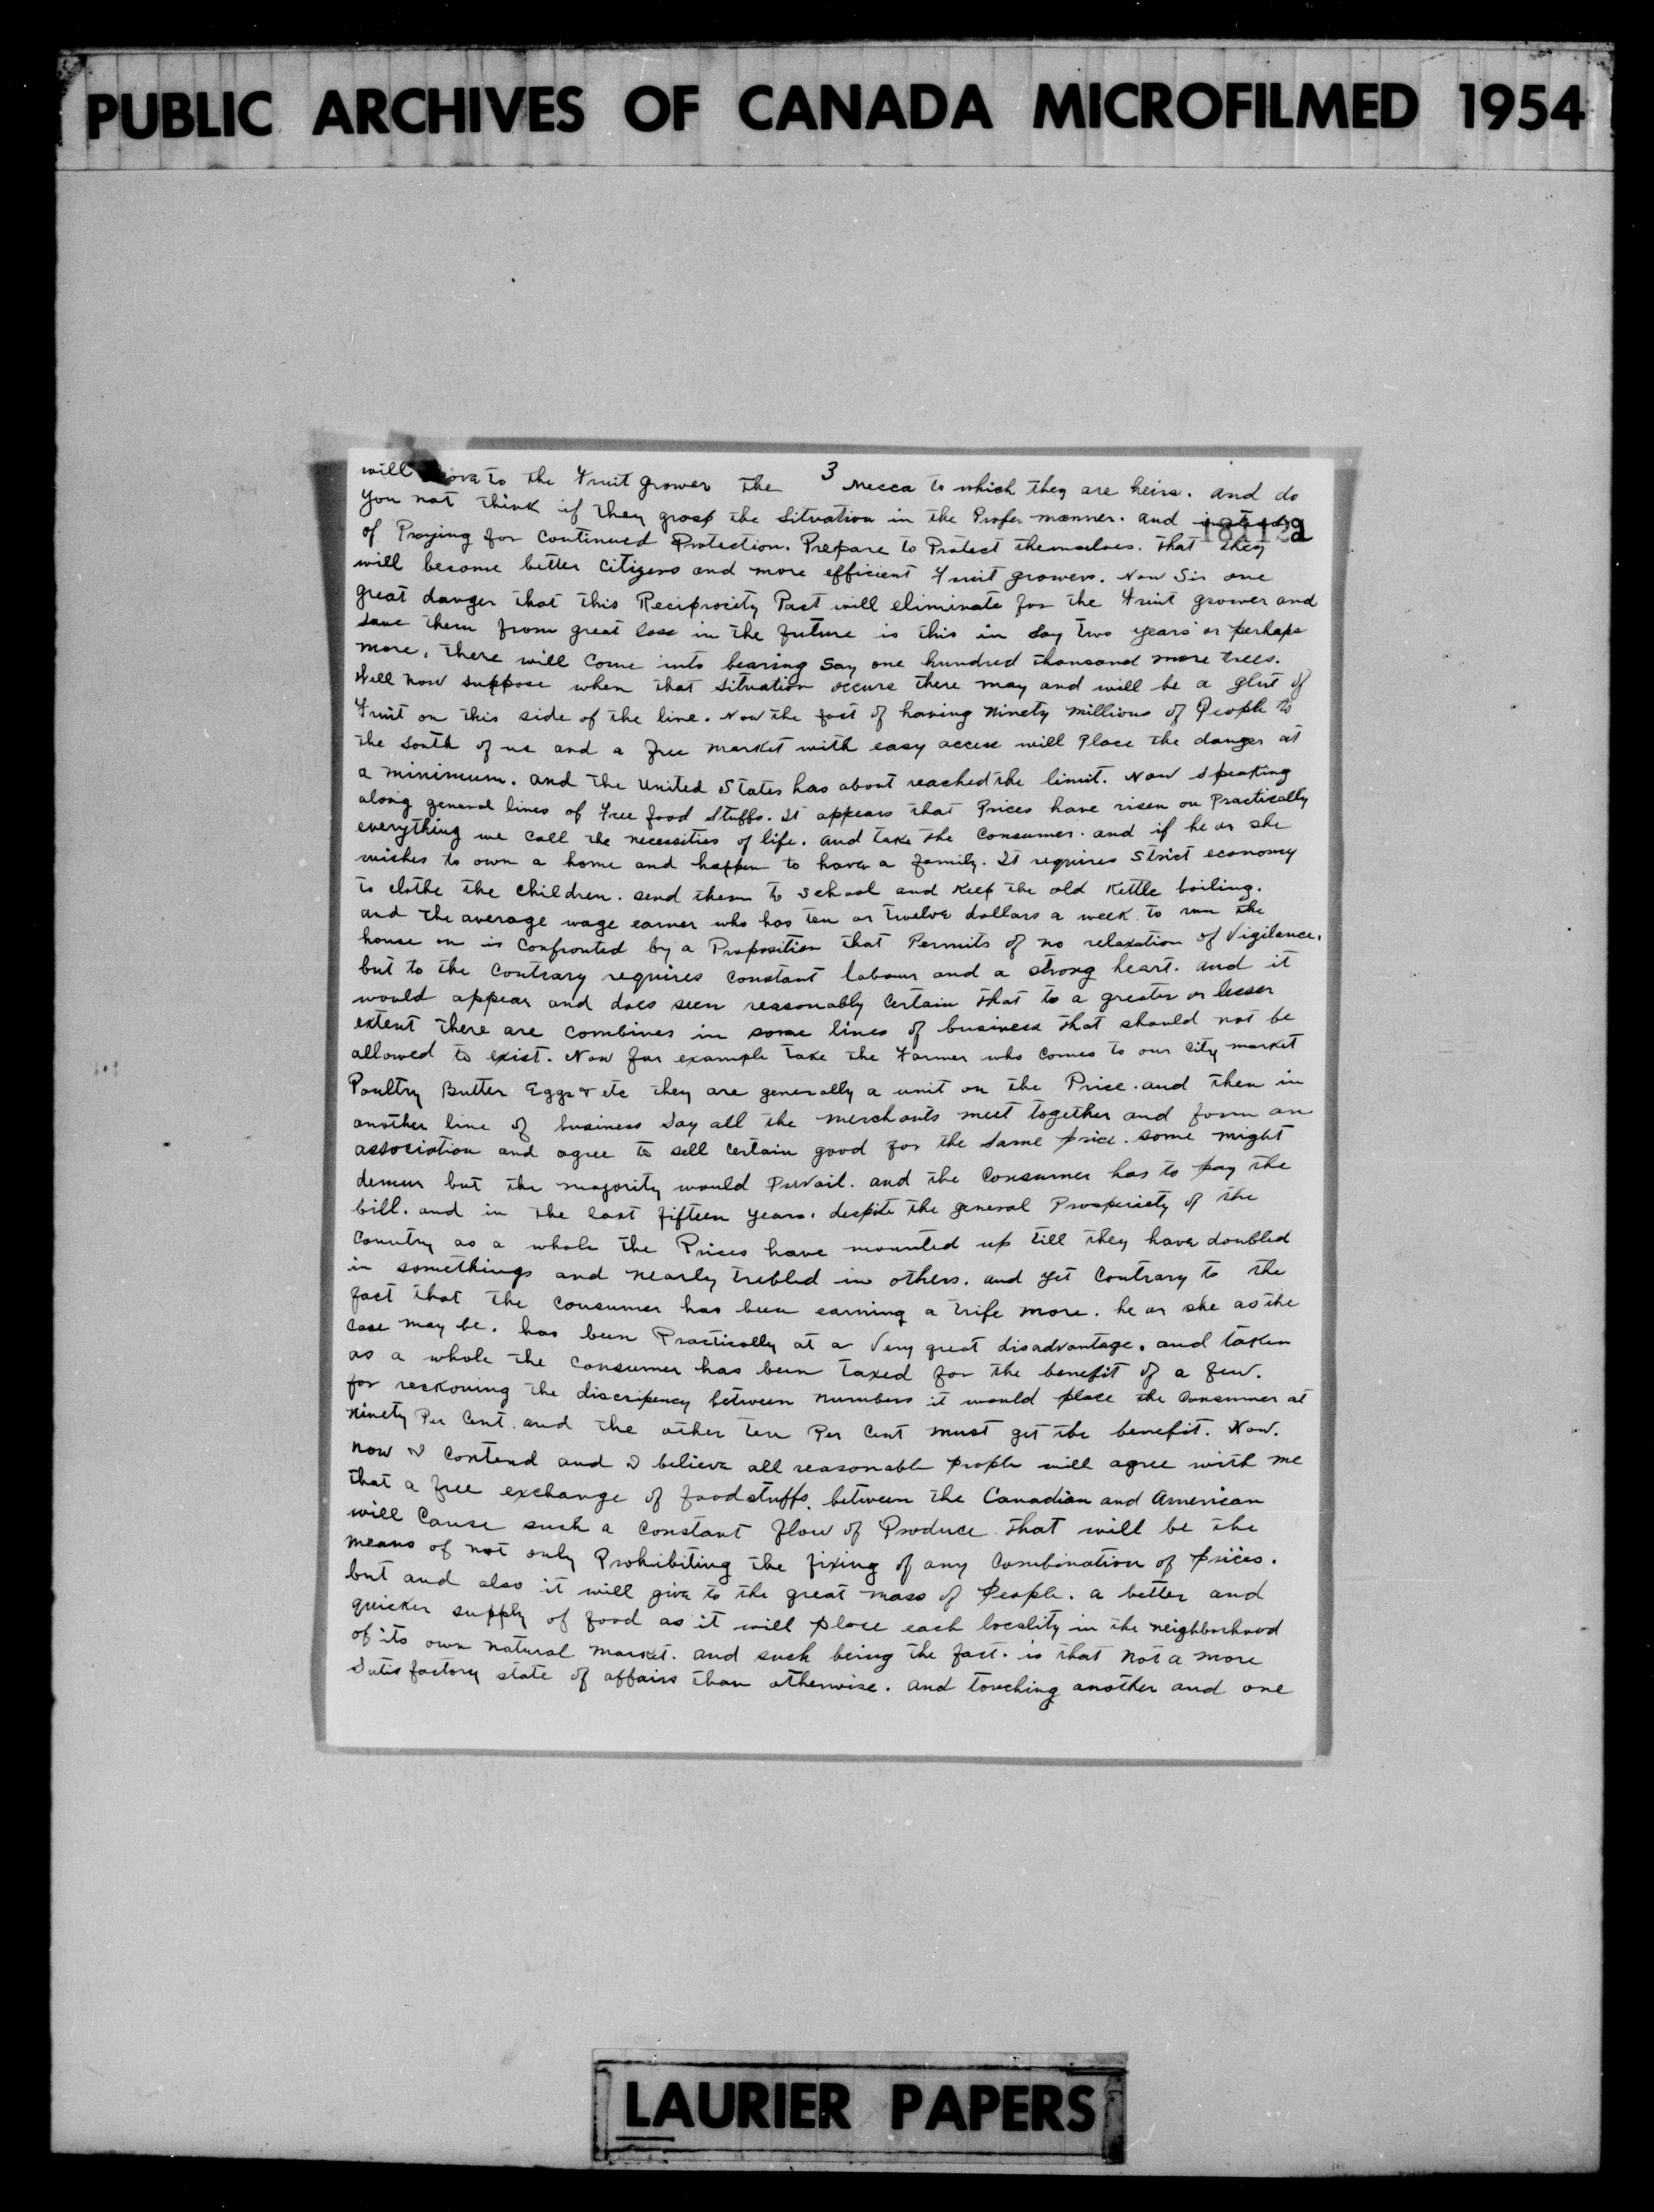 PUBLIC ARCHIVES OF CANADA MICROFILMED 1954
3
will to the Fruit grower the Mecca to which they are heirs. and do
you not think if they grasp the Situation in the Proper manner. and instead
of Praying for Continued Protection. Prepare to Protect themselves. that they
will become better Citizens and more efficient Fruit growers. Now Sir one
great danger that this Reciprocity Pact will eliminate for the Fruit grower and
Save them from great loss in the future is this in Say two years or perhaps
more, there will Come into bearing Say one hundred thousand more trees.
Well now suppose when that Situation occurs there may and will be a glut of
Fruit on this side of the line. Now the fact of having Ninety Millions of People to
the South of us and a free market with easy access will Place the danger at
a minimum. and the United States has about reached the limit. Now Speaking
along general lines of Free food Stuffs. It appears that Prices have risen on Practically
everything we Call the necessities of life. and take the Consumer. and if he or she
wishes to own a home and happen to have a family. It requires Strict economy
to clothe the children. send them to School and Keep the old Kettle boiling.
and the average wage earner who has ten or twelve dollars a week to run the
house on is Confronted by a Proposition that Permits of no relaxation of Vigilance.
but to the Contrary requires Constant labour and a strong heart. and it
would appear and does seem reasonably Certain that to a greater or lesser
extent there are Combines in some lines of business that should not be
allowed to exist. Now for example take the Farmer who Comes to our City market
Poultry Butter Eggs & etc they are generally a unit on the Price. and then in
another line of business Say all the merchants meet together and form an
association and agree to sell Certain good for the Same price. some might
demur but the majority would Prevail. and the Consumer has to pay the
bill. and in the last fifteen years. despite the general Prosperiety of the
Country as a whole the Prices have mounted up till they have doubled
in somethings and nearly trebled in others. and yet Contrary to the
fact that the Consumer has been earning a trife more. he or she as the
Case may be. has been Practically at a Very great disadvantage. and taken
as a whole the Consumer has been taxed for the benefit of a few.
for reckoning the discripency between numbers it would place the Consumer at
Ninety Per Cent. and the other ten Per Cent must get the benefit. Now.
now I Contend and I believe all reasonable people will agree with me
that a free exchange of foodstuffs. between the Canadian and American
will Cause such a Constant flow of Produce that will be the
means of not only Prohibiting the fixing of any Combination of prices.
but and also it will give to the great mass of People. a better and
quicker supply of food as it will place each locality in the neighborhood
of its own natural market. and such being the fact. is that not a more
Satisfactory state of affairs than otherwise. and touching another and one
LAURIER PAPERS